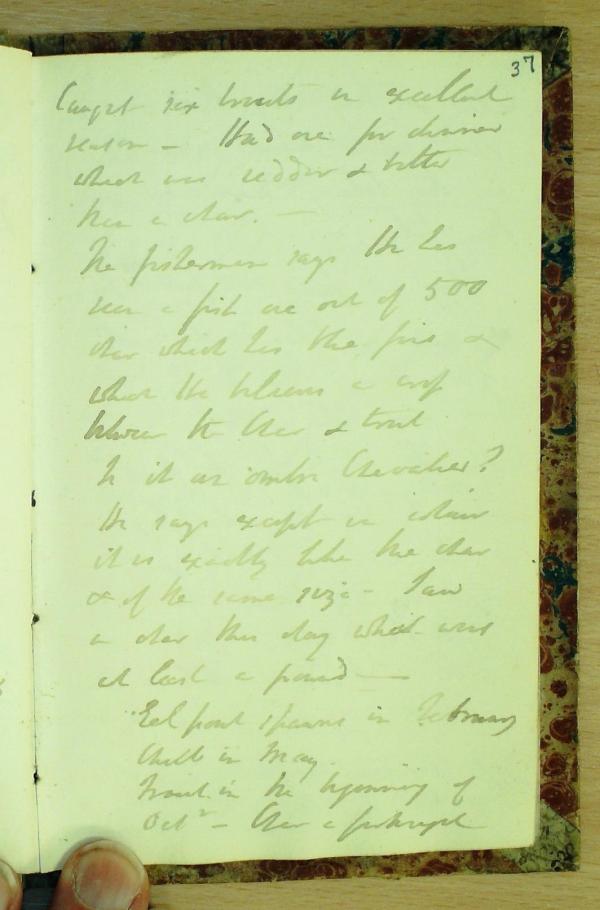 37
Caught six trouts in excellent
season - Had one for dinner
which was redder & better
than a char. -
The fisherman says He has
seen a fish one out of 500
char which has the fins &
which He believes a
between the Char & trout
Is it an ombre Chevalier?
He says except in colour
it is exactly like the char
& of the same size - I saw
a char this day which was
at least a pound -
Eel pout spawns in February
in May.
Trout in the beginning of
Octr - Char a fortnight